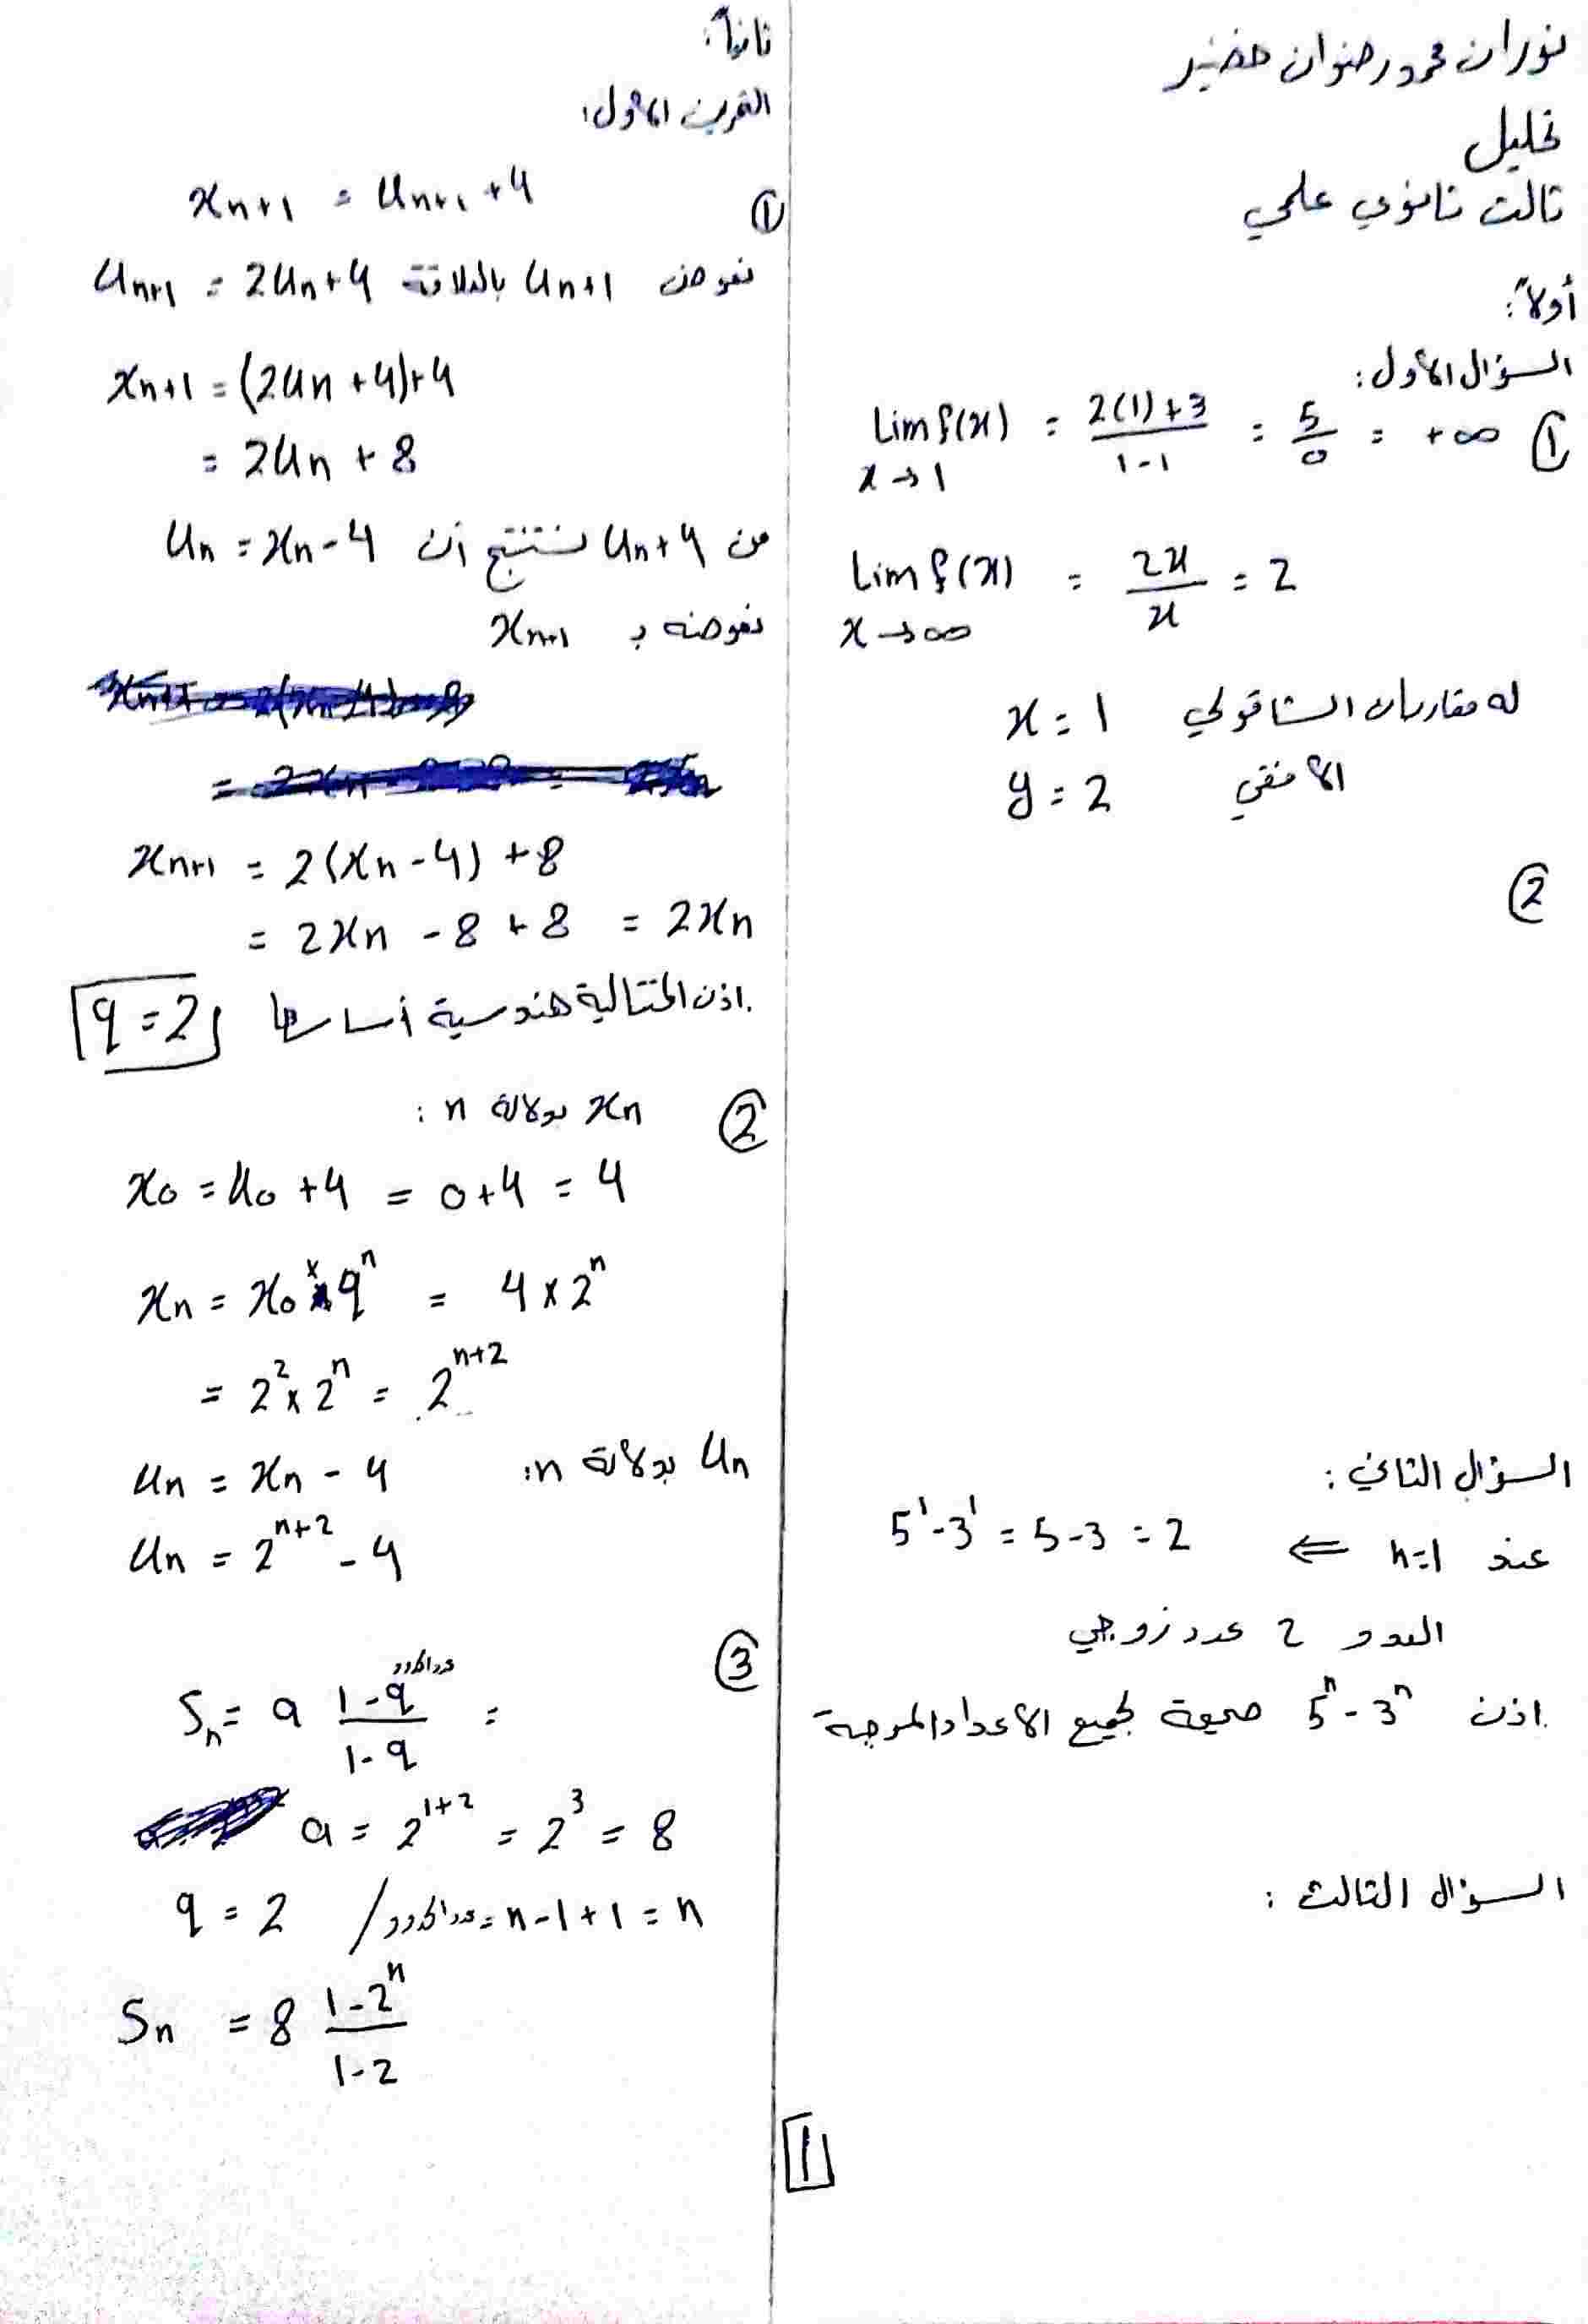 نوران محمد رضوان خضير
تحليل
ثالث ثانوي علمي
أولاً:
السؤال الأول:
① lim f(x) = 2(1)+3 / 1-1 = 5/0 = +∞
x→1
lim f(x) = 2x/x = 2
x→∞
له مقاربان الشاقولي x = 1
الافقي y = 2
②
السؤال الثاني:
عند n=1 ⇐ 5¹-3¹ = 5-3 = 2
العدد 2 عدد زوجي
اذن 5ⁿ-3ⁿ صحيحة لجميع الاعداد الموجبة
السؤال الثالث:
ثانياً:
التمرين الأول:
① xn+1 = un+1 + 4
نعوض un+1 بالعلاقة un+1 = 2un+4
xn+1 = (2un+4)+4
= 2un + 8
من un+4 نستنتج أن un = xn-4
نعوضه بـ xn+1
xn+1 = 2(xn-4) + 8
= 2xn - 8 + 8 = 2xn
اذن المتتالية هندسية أساسها q=2
② xn بدلالة n:
x0 = u0 + 4 = 0+4 = 4
xn = x0 × qⁿ = 4 × 2ⁿ
= 2² × 2ⁿ = 2ⁿ⁺²
un بدلالة n: un = xn - 4
un = 2ⁿ⁺² - 4
③ Sn = a (1-q^عدد الحدود)/(1-q) =
a = 2¹⁺² = 2³ = 8
q = 2 / عدد الحدود = n-1+1 = n
Sn = 8 (1-2ⁿ)/(1-2)
1